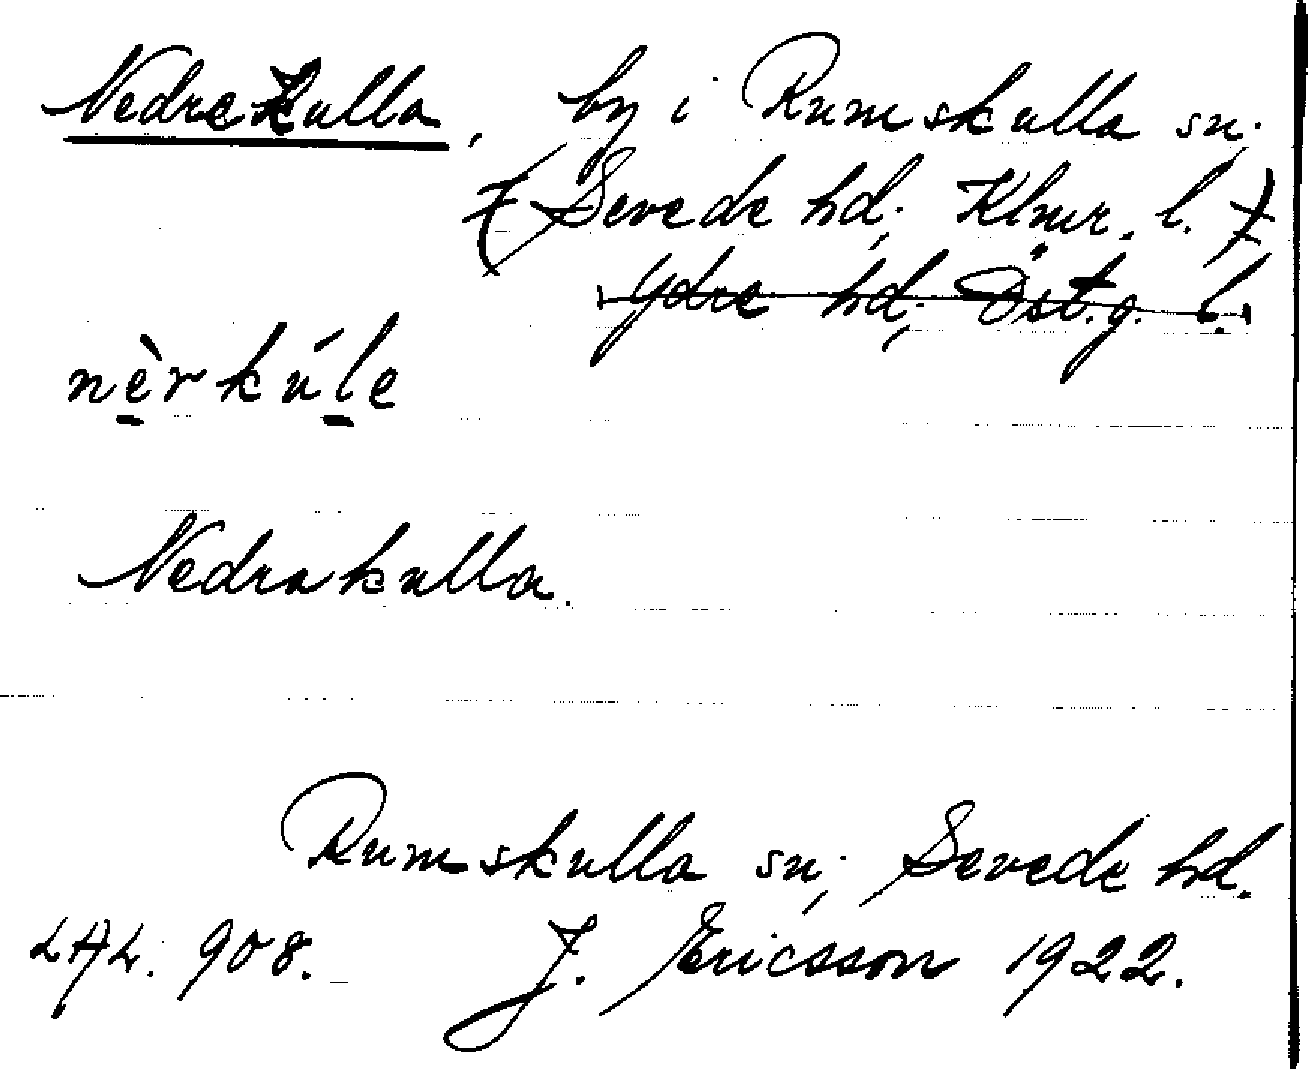 Nedrekulla, by i Rumskulla sn.
(Sevede hd., Klmr. l.)
Ydre hd., Östg. l.
nèrkúle
Nedrakulla.
Rumskulla sn., Sevede hd.
LAL. 908. J. Ericsson 1922.